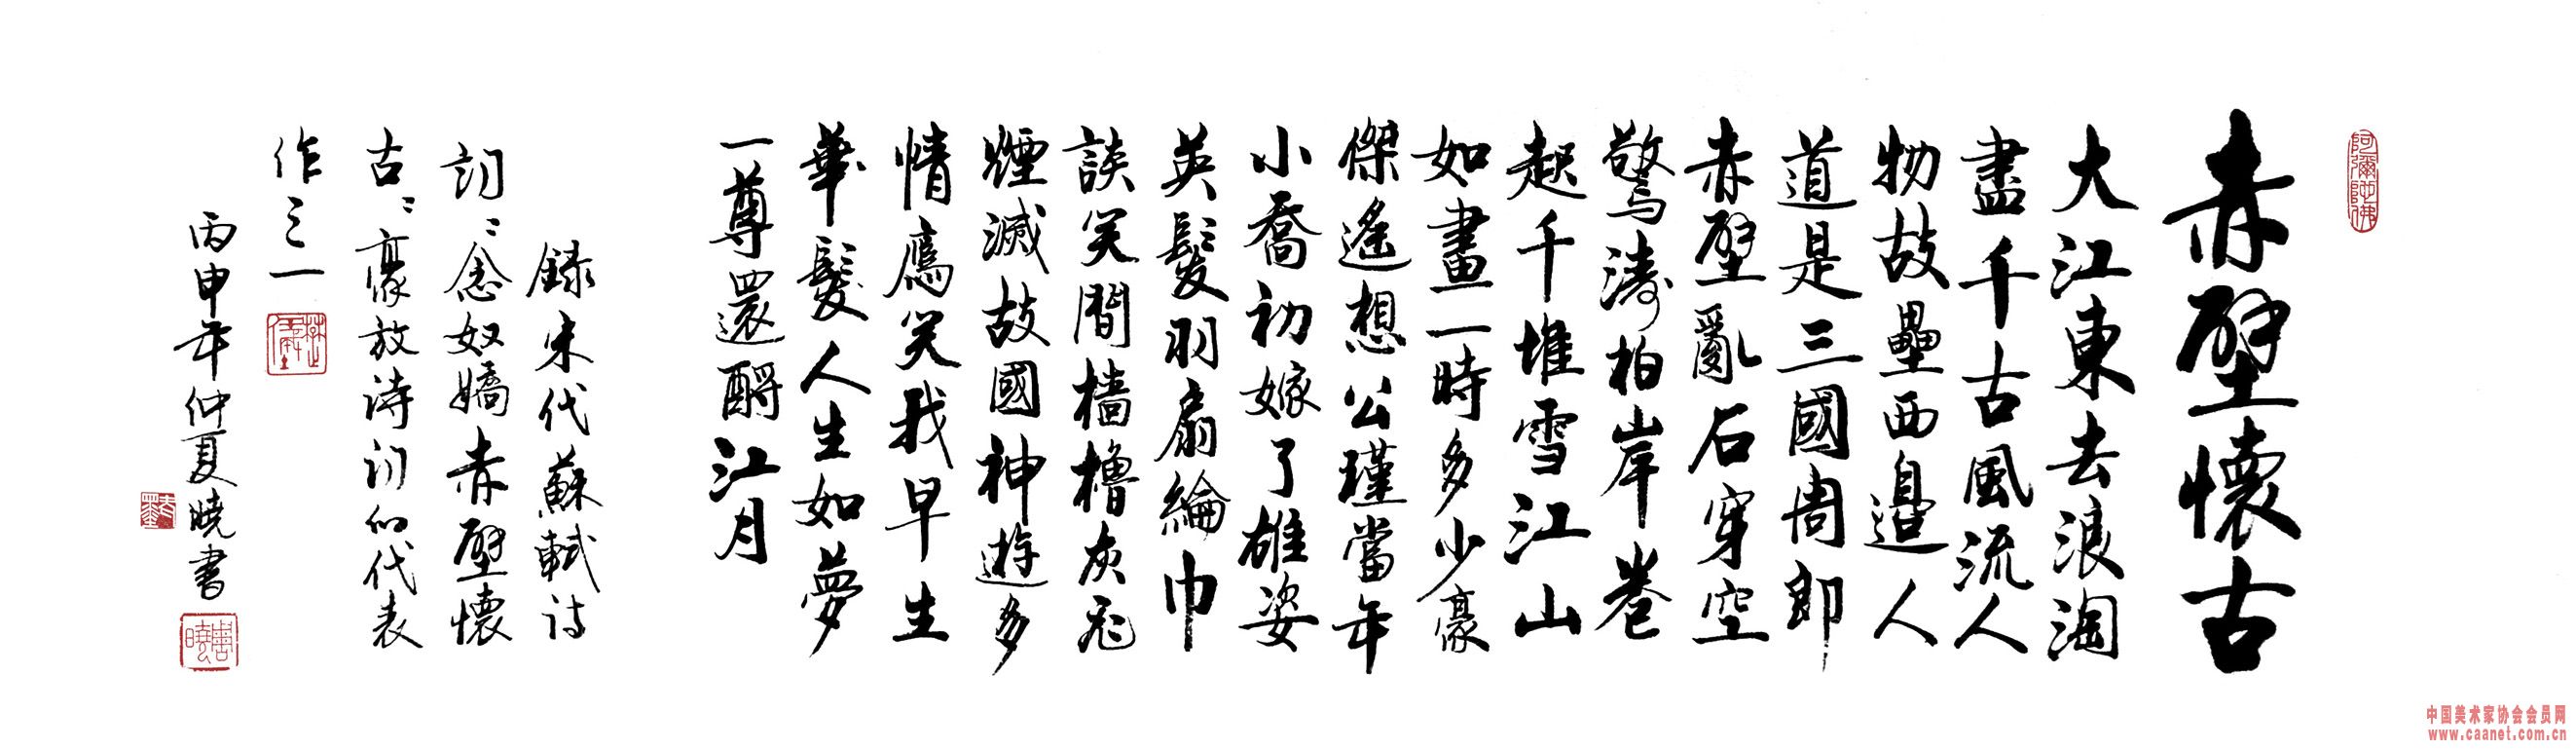 阿彌陀佛
赤壁懷古
大江東去浪淘
盡千古風流人
物故壘西邊人
道是三國周郎
赤壁亂石穿空
驚濤拍岸卷
起千堆雪江山
如畫一時多少豪
傑遙想公瑾當年
小喬初嫁了雄姿
英髮羽扇綸巾
談笑間檣櫓灰飛
煙滅故國神遊多
情應笑我早生
華髮人生如夢
一尊還酹江月
錄宋代蘇軾詩
詞：念奴嬌赤壁懷
古：豪放詩詞的代表
作之一
丙申年仲夏曉書
中国美术家协会会员网
www.caanet.com.cn